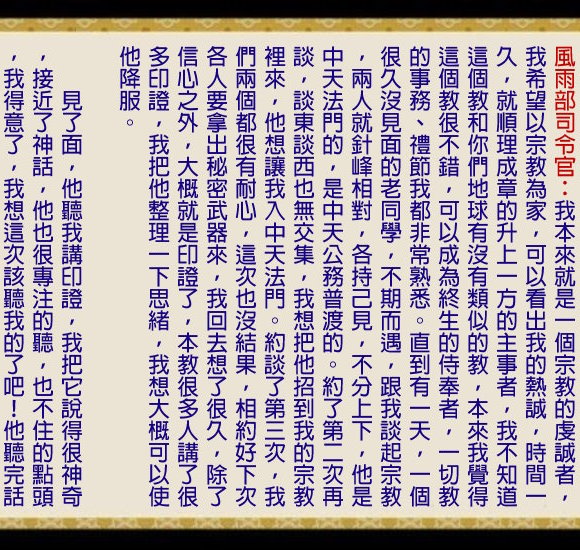 風雨部司令官：我本來就是一個宗教的虔誠者，
我希望以宗教為家，可以看出我的熱誠，時間一
久，就順理成章的升上一方的主事者，我不知道
這個教和你們地球有沒有類似的教，本來我覺得
這個教很不錯，可以成為終生的侍奉者，一切教
的事務、禮節我都非常熟悉。直到有一天，一個
很久沒見面的老同學，不期而遇，跟我談起宗教
，兩人就針峰相對，各持己見，不分上下，他是
中天法門的，是中天公務普渡的。約了第二次再
談，談東談西也無交集，我想把他招到我的宗教
裡來，他想讓我入中天法門。約談了第三次，我
們兩個都很有耐心，這次也沒結果，相約好下次
各人要拿出秘密武器來，我回去想了很久，除了
信心之外，大概就是印證了，本教很多人講了很
多印證，我把他整理一下思緒，我想大概可以使
他降服。
見了面，他聽我講印證，我把它說得很神奇
，接近了神話，他也很專注的聽，也不住的點頭
，我得意了，我想這次該聽我的了吧！他聽完話